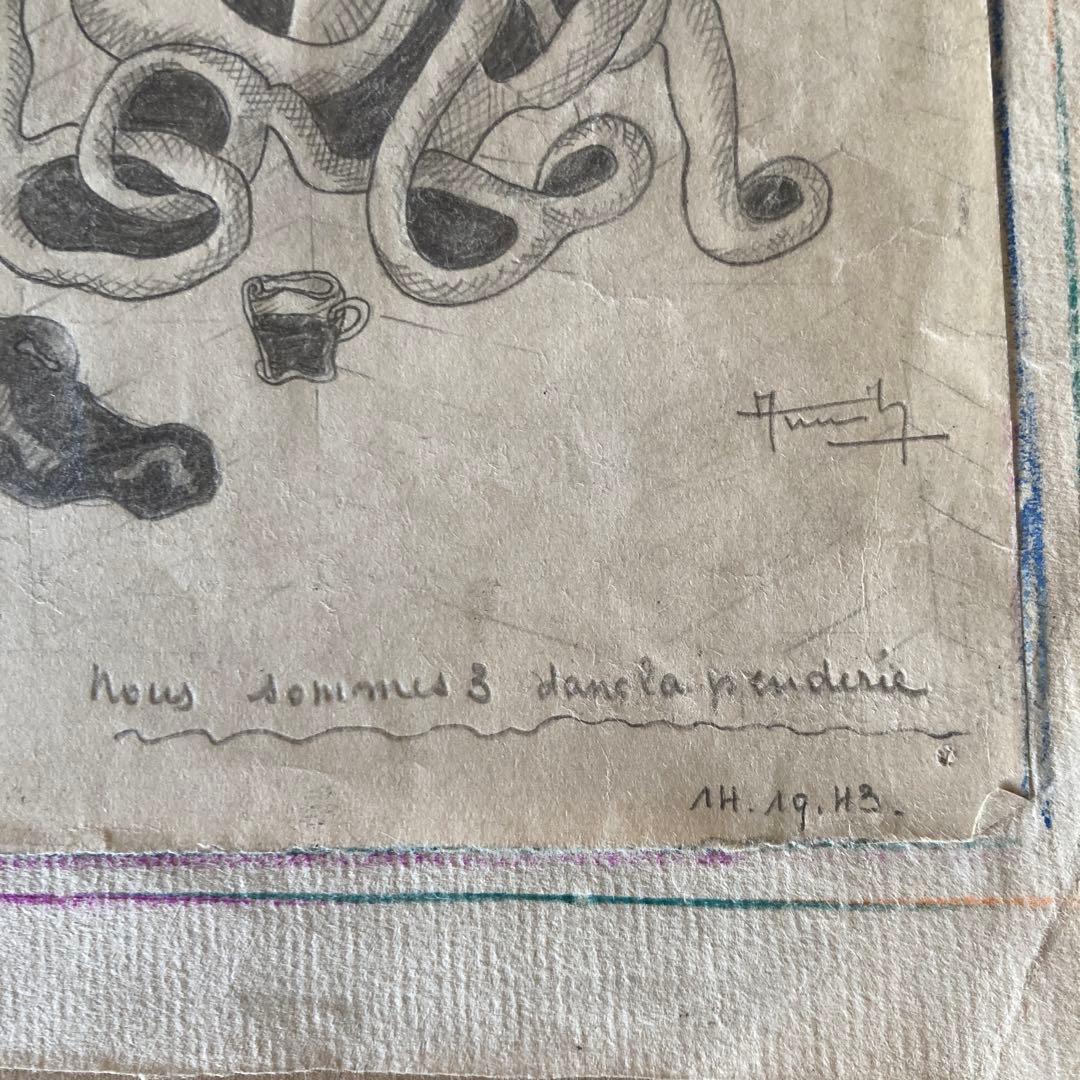 Nous sommes 3 dans la penderie
14.19.43.